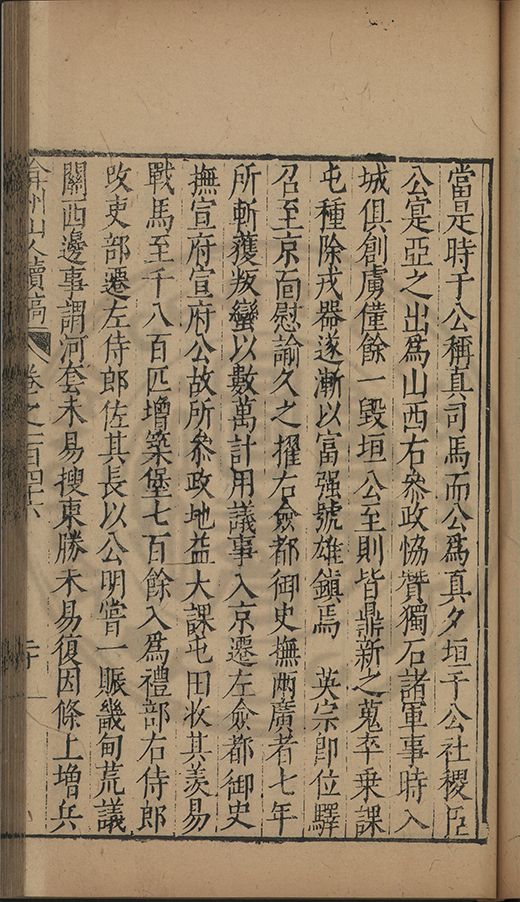 當是時于公稱真司馬而公爲真夕垣于公社稷臣
公寔亞之出爲山西右參政恊贊獨石諸軍事時入
城俱創虜僅餘一毀垣公至則皆鼎新之蒐卒乗課
屯種除戎器遂漸以富强號雄鎮焉 英宗即位驛
召至京面慰諭久之擢右僉都御史撫兩廣者七年
所斬獲叛蠻以數萬計用議事入京遷左僉都御史
撫宣府宣府公故所參政地益大課屯田收其羨易
戰馬至千八百匹增築堡七百餘入爲禮部右侍郎
改吏部遷左侍郎佐其長以公明嘗一賑畿甸荒議
關西邊事謂河套未易搜東勝未易復因條上增兵
弇州山人續稿 卷之一百四十六 二十